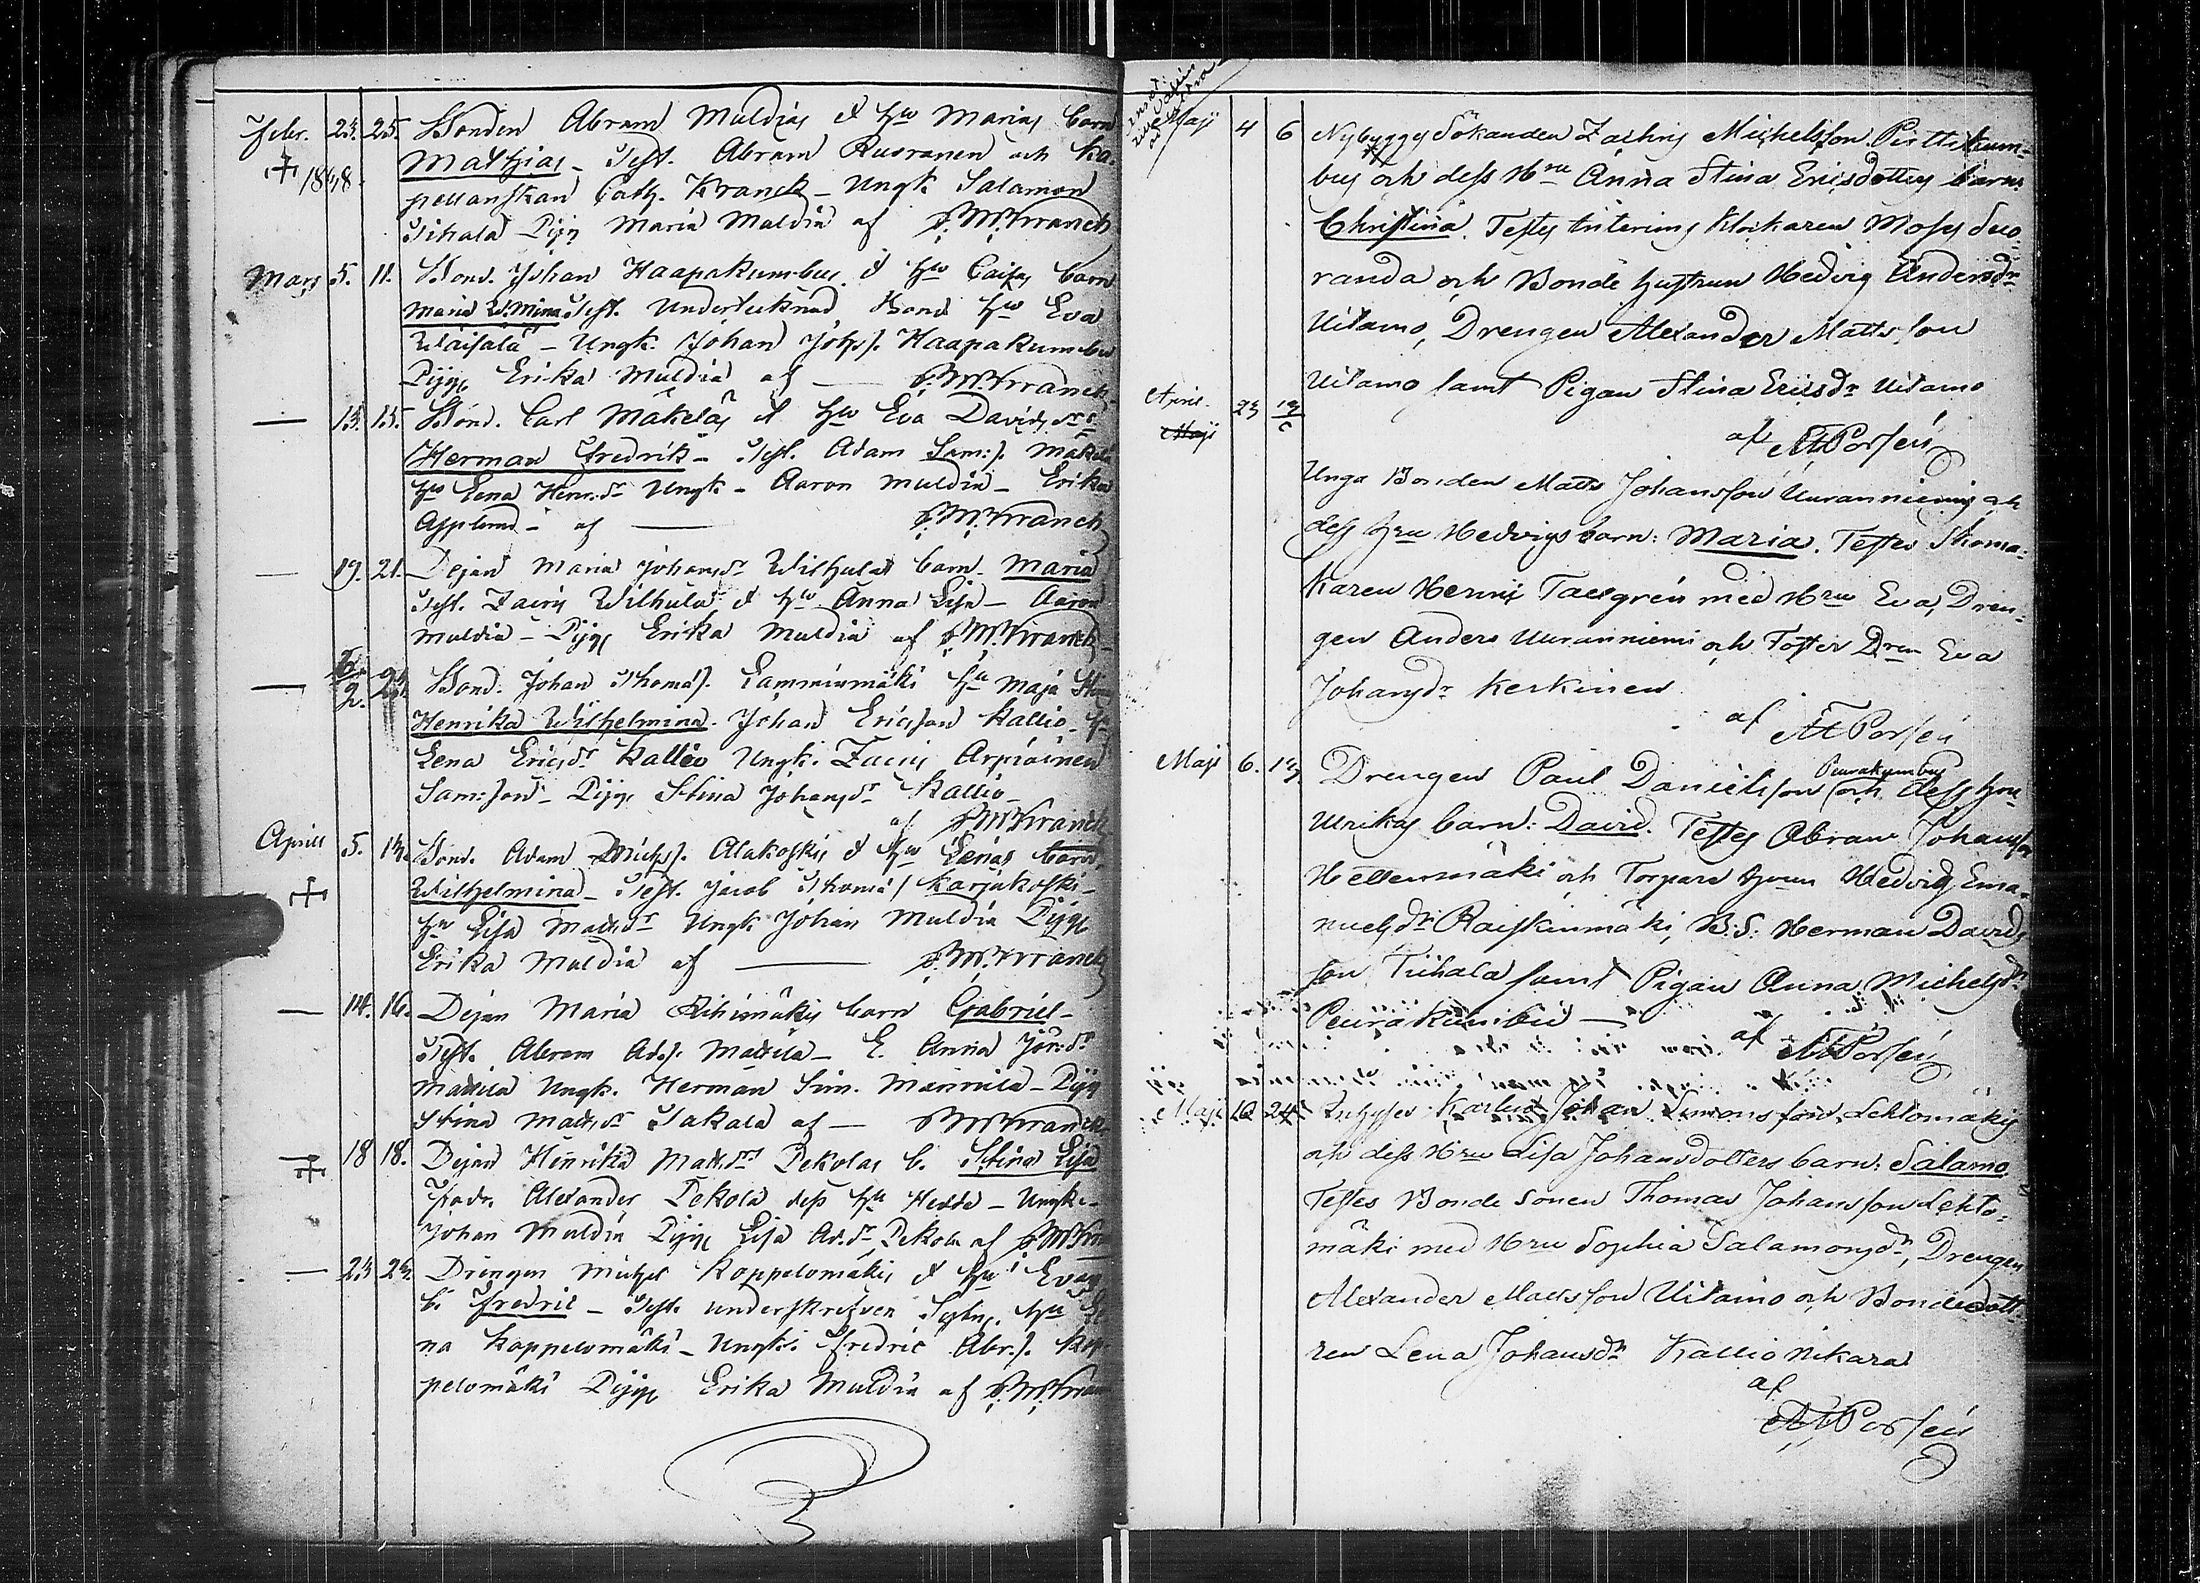 Febr. 23. 25. Bonden Abram Muldias & Hu Marias barn
1848. Mathias - Test. Abram Rusranen och Ka-
pellanskan Cath. Kranck - Ungk. Salamon
Tihala Pig. Maria Muldia af Kranck
Mars 5. 11. Bond. Johan Haapakumbus & Hu Caisas barn
Maria W.mina Test. Undertecknad Bond. Hu Eva
Wäisälä - Ungk. Johan Johs. Haapakumbu
Pig. Erika Muldia af — Kranck
— 13. 15. Bond. Carl Mäkeläs & Hu Eva Davidsdr
Herman Fredrik - Test. Adam Sam:s. Mäkelä
Hu Lena Henr.dr Ungk. - Aaron Muldia - Erika
Applund - af — Kranck
— 19. 21. Pejan Maria Johansdr Wilhulas barn Maria
Test. Zacris Wilhula & Hu Anna Lisa - Aaron
Muldia - Pig. Erika Muldia af Kranck
— Bond. Johan Thomas. Lamminmäki Hu Maja
Henrika Wilhelmina. Johan Ericsson Kallio - Hu
Lena Ericsdr Kallio Ungk. Zacris Arpiainen
Sam:son - Pig. Stina Johansdr Kallio -
af Kranck
Aprill 5. 13. Bond. Adam Michs. Alakoskis & Hu Lenas barn
Wilhelmina - Test. Jacob Thomas Karjakoski -
Hu Lisa Mattsdr Ungk. Johan Muldia Pig.
Erika Muldia af — Kranck
— 14. 16. Pejan Maria Riihimäkis barn Gabriel -
Test. Abram Ad.s. Mattila - E. Anna Joh.dr
Mattila Ungk. Herman Sim. Mannila - Pig.
Stina Matts.dr Jakala af — Kranck
— 18 18. Pejan Henrika Matts.dr Pekolas b. Stina Lisa
Fadr. Alexander Pekola dess Hu Hedda - Ungk. -
Johan Muldia Pig. Lisa Ad.dr Pekola af
— 23. Drengen Michel Koppelomäkis & Hu Evas
b. Fredric - Test. underskrifven
na Koppelomäki - Ungk. Fredric Abr.s. Kop-
pelomäki Pig. Erika Muldia af
Maji 4 6 Nybyggs Sökanden Zachris Michelsson Pirttikum-
bus och dess Hru Anna Stina Ericsdotters barn
Christina. Testes Interims Klockaren Moses Suo-
randa och Bonde hustrun Hedvig Andersdr
Uitamo, Drengen Alexander Matts son
Uitamo samt Pigan Stina Ericsdr Uitamo
af Porsén
April Maji 23
Unga Bonden Matts Johansson Uuranniemis och
dess Hru Hedvigs barn: Maria. Testes Skoma-
karen Henric Taelgrén med Hru Eva, Dren-
gen Anders Uuranniemi och Foster Dren Eva
Johansdr Kerkinen
af Porsén
Maji 6. 13 Drengen Paul Danielsson Peurakumbus och dess Hru
Ulrikas barn: David. Testes Abram Johansson
Hettenmäki och Torpare Hrun Hedvig Ema-
nuelsdr Raiskinmäki, B.S: Herman Davids
son Tiihala samt Pigan Anna Michelsdr
Peurakumbu — af Porsén
Maji 10 24 Inhyses Karlen Johan Simonsson Lehtomäkis
och dess Hru Lisa Johansdotters barn: Salamo
Testes Bonde Sonen Thomas Johansson Lehto-
mäki med Hru Sophia Salamonsdr, Drengen
Alexander Matts son Uitamo och Bondedott-
ren Lena Johansdr Kallio Nikara
af
Porsén